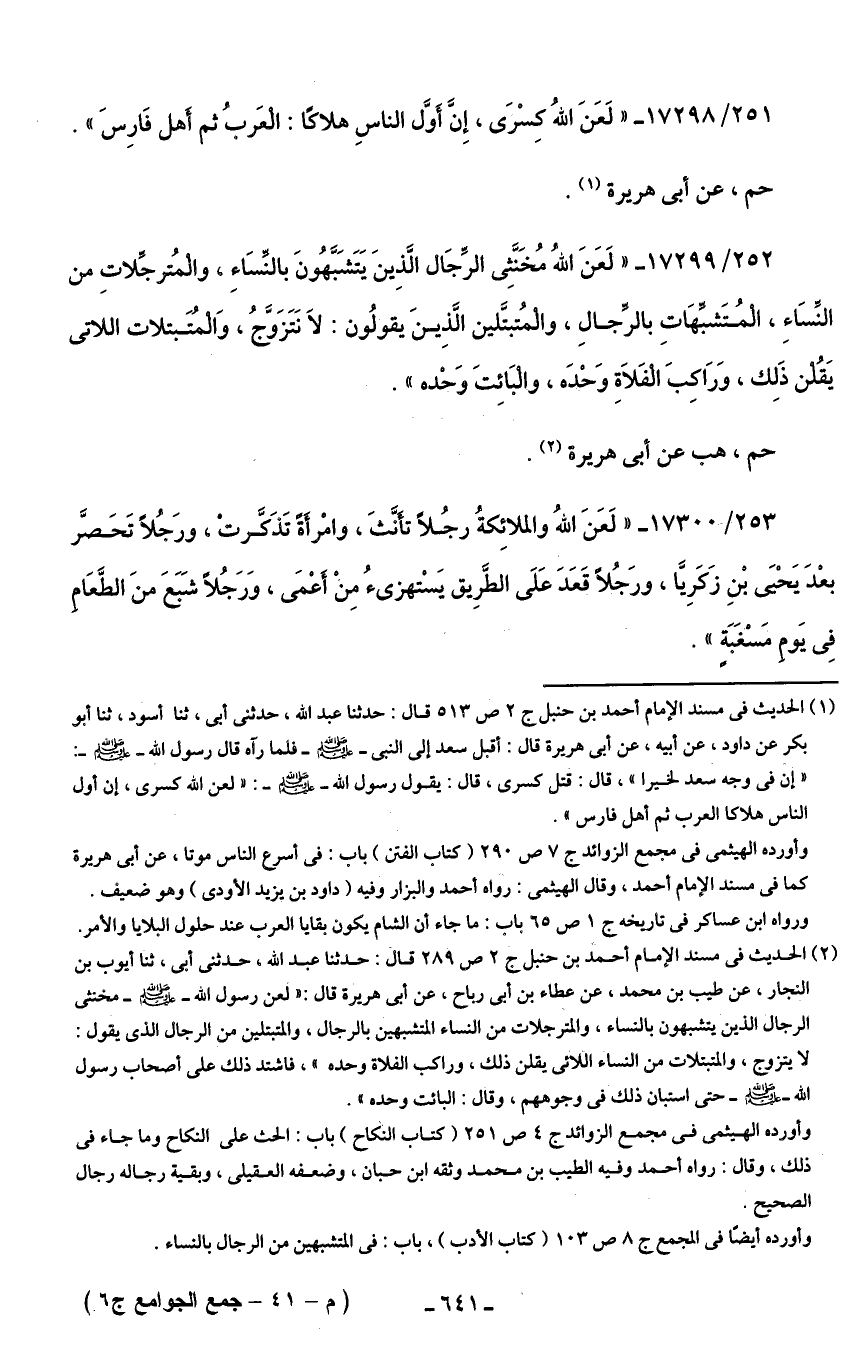 ١٧٢٩٨/٢٥١ـ « لَعَنَ اللهُ كِسْرَى ، إِنَّ أَوَّل الناسِ هلاكًا : الْعَربُ ثم أَهل فَارِسَ » .
حم ، عن أبى هريرة (١) .
١٧٢٩٩/٢٥٢ـ « لَعَنَ اللهُ مُخَنَّثِى الرِّجَال الَّذِينَ يَتَشَبَّهُونَ بالنِّسَاءِ ، والْمُترجِّلاتِ من
النِّسَاءِ ، الْمُتَشَبِّهَاتِ بالرِّجـالِ ، والْمُتبتَّلين الَّذِيـنَ يقولُون : لاَ نَتَزَوَّجُ ، وَالْمُتَـبتلات اللاتى
يَقُلْن ذَلِك ، ورَاكِبَ الْفَلاَةِ وَحْدَه ، والْبَائِتَ وَحْده » .
حم ، هب عن أبى هريرة (٢) .
١٧٣٠٠/٢٥٣ـ « لَعَنَ اللهُ والملائكةُ رجُـلاً تأَنَّثَ ، وامْرأَةً تَذَكَّـرتْ ، ورَجُلاً تَحَـصرَّ
بعْدَ يَحْيَى بْنِ زَكَريَّا ، ورَجُلاً قَعَدَ عَلَى الطَّريق يَسْتهزىءُ مِنْ أَعْمَى ، ورَجُلاً شَبَعَ منَ الطَّعَامِ
فِى يَومِ مَسْغَبَةٍ » .
(١) الحديث فى مسند الإمام أحمد بن حنبل ج ٢ ص ٥١٣ قـال : حدثنا عبد الله ، حدثنى أبى ، ثنا أسود ، ثنا أبو
بكر عن داود ، عن أبيه ، عن أبى هريرة قال : أقبل سعد إلى النبى ـ ﷺ ـ فلما رآه قال رسول الله ـ ﷺ ـ:
« إن فى وجه سعد لخيرا » ، قال : قتل كسرى ، قال : يقـول رسول الله ـ ﷺ ـ : « لعن الله كسرى ، إن أول
الناس هلاكا العرب ثم أهل فارس » .
وأورده الهيثمى فى مجمع الزوائد ج ٧ ص ٢٩٠ ( كتاب الفتن ) باب : فى أسرع الناس موتا ، عن أبى هريرة
كما فى مسند الإمام أحمد ، وقال الهيثمى : رواه أحمد والبزار وفيه ( داود بن يزيد الأودى ) وهو ضعيف .
ورواه ابن عساكر فى تاريخه ج ١ ص ٦٥ باب : ما جاء أن الشام يكون بقايا العرب عند حلول البلايا والأمر.
(٢) الحـديث فى مسند الإمـام أحـمـد بن حنبل ج ٢ ص ٢٨٩ قـال : حـدثنا عبـد الله ، حـدثنى أبى ، ثنا أيوب بن
النجار ، عن طيب بن محمد ، عن عطاء بن أبى رباح ، عن أبى هريرة قال :« لعن رسول الله ـ ﷺ ـ مخنثى
الرجال الذين يتشبهون بالنساء ، والمترجلات من النساء المتشبهين بالرجال ، والمتبتلين من الرجال الذى يقول :
لا يتزوج ، والمتبتلات من النساء اللائى يقلن ذلك ، وراكب الفلاة وحده » ، فاشتد ذلك على أصحاب رسول
الله ـ ﷺ ـ حتى استبان ذلك فى وجوههم ، وقال : البائت وحده » .
وأورده الهـيثمى فـى مجمـع الزوائد ج ٤ ص ٢٥١ ( كتـاب النكاح ) باب : الحث على النكاح وما جـاء فى
ذلك ، وقال : رواه أحمد وفيه الطيب بن محـمـد وثقه ابن حبان ، وضعـفه العـقيلى ، وبقـية رجـاله رجال
الصحيح .
وأورده أيضًا فى المجمع ج ٨ ص ١٠٣ ( كتاب الأدب ) ، باب : فى المتشبهين من الرجال بالنساء .
ـ ٦٤١ ـ
( م - ٤١ - جمع الجوامع ج٦ )